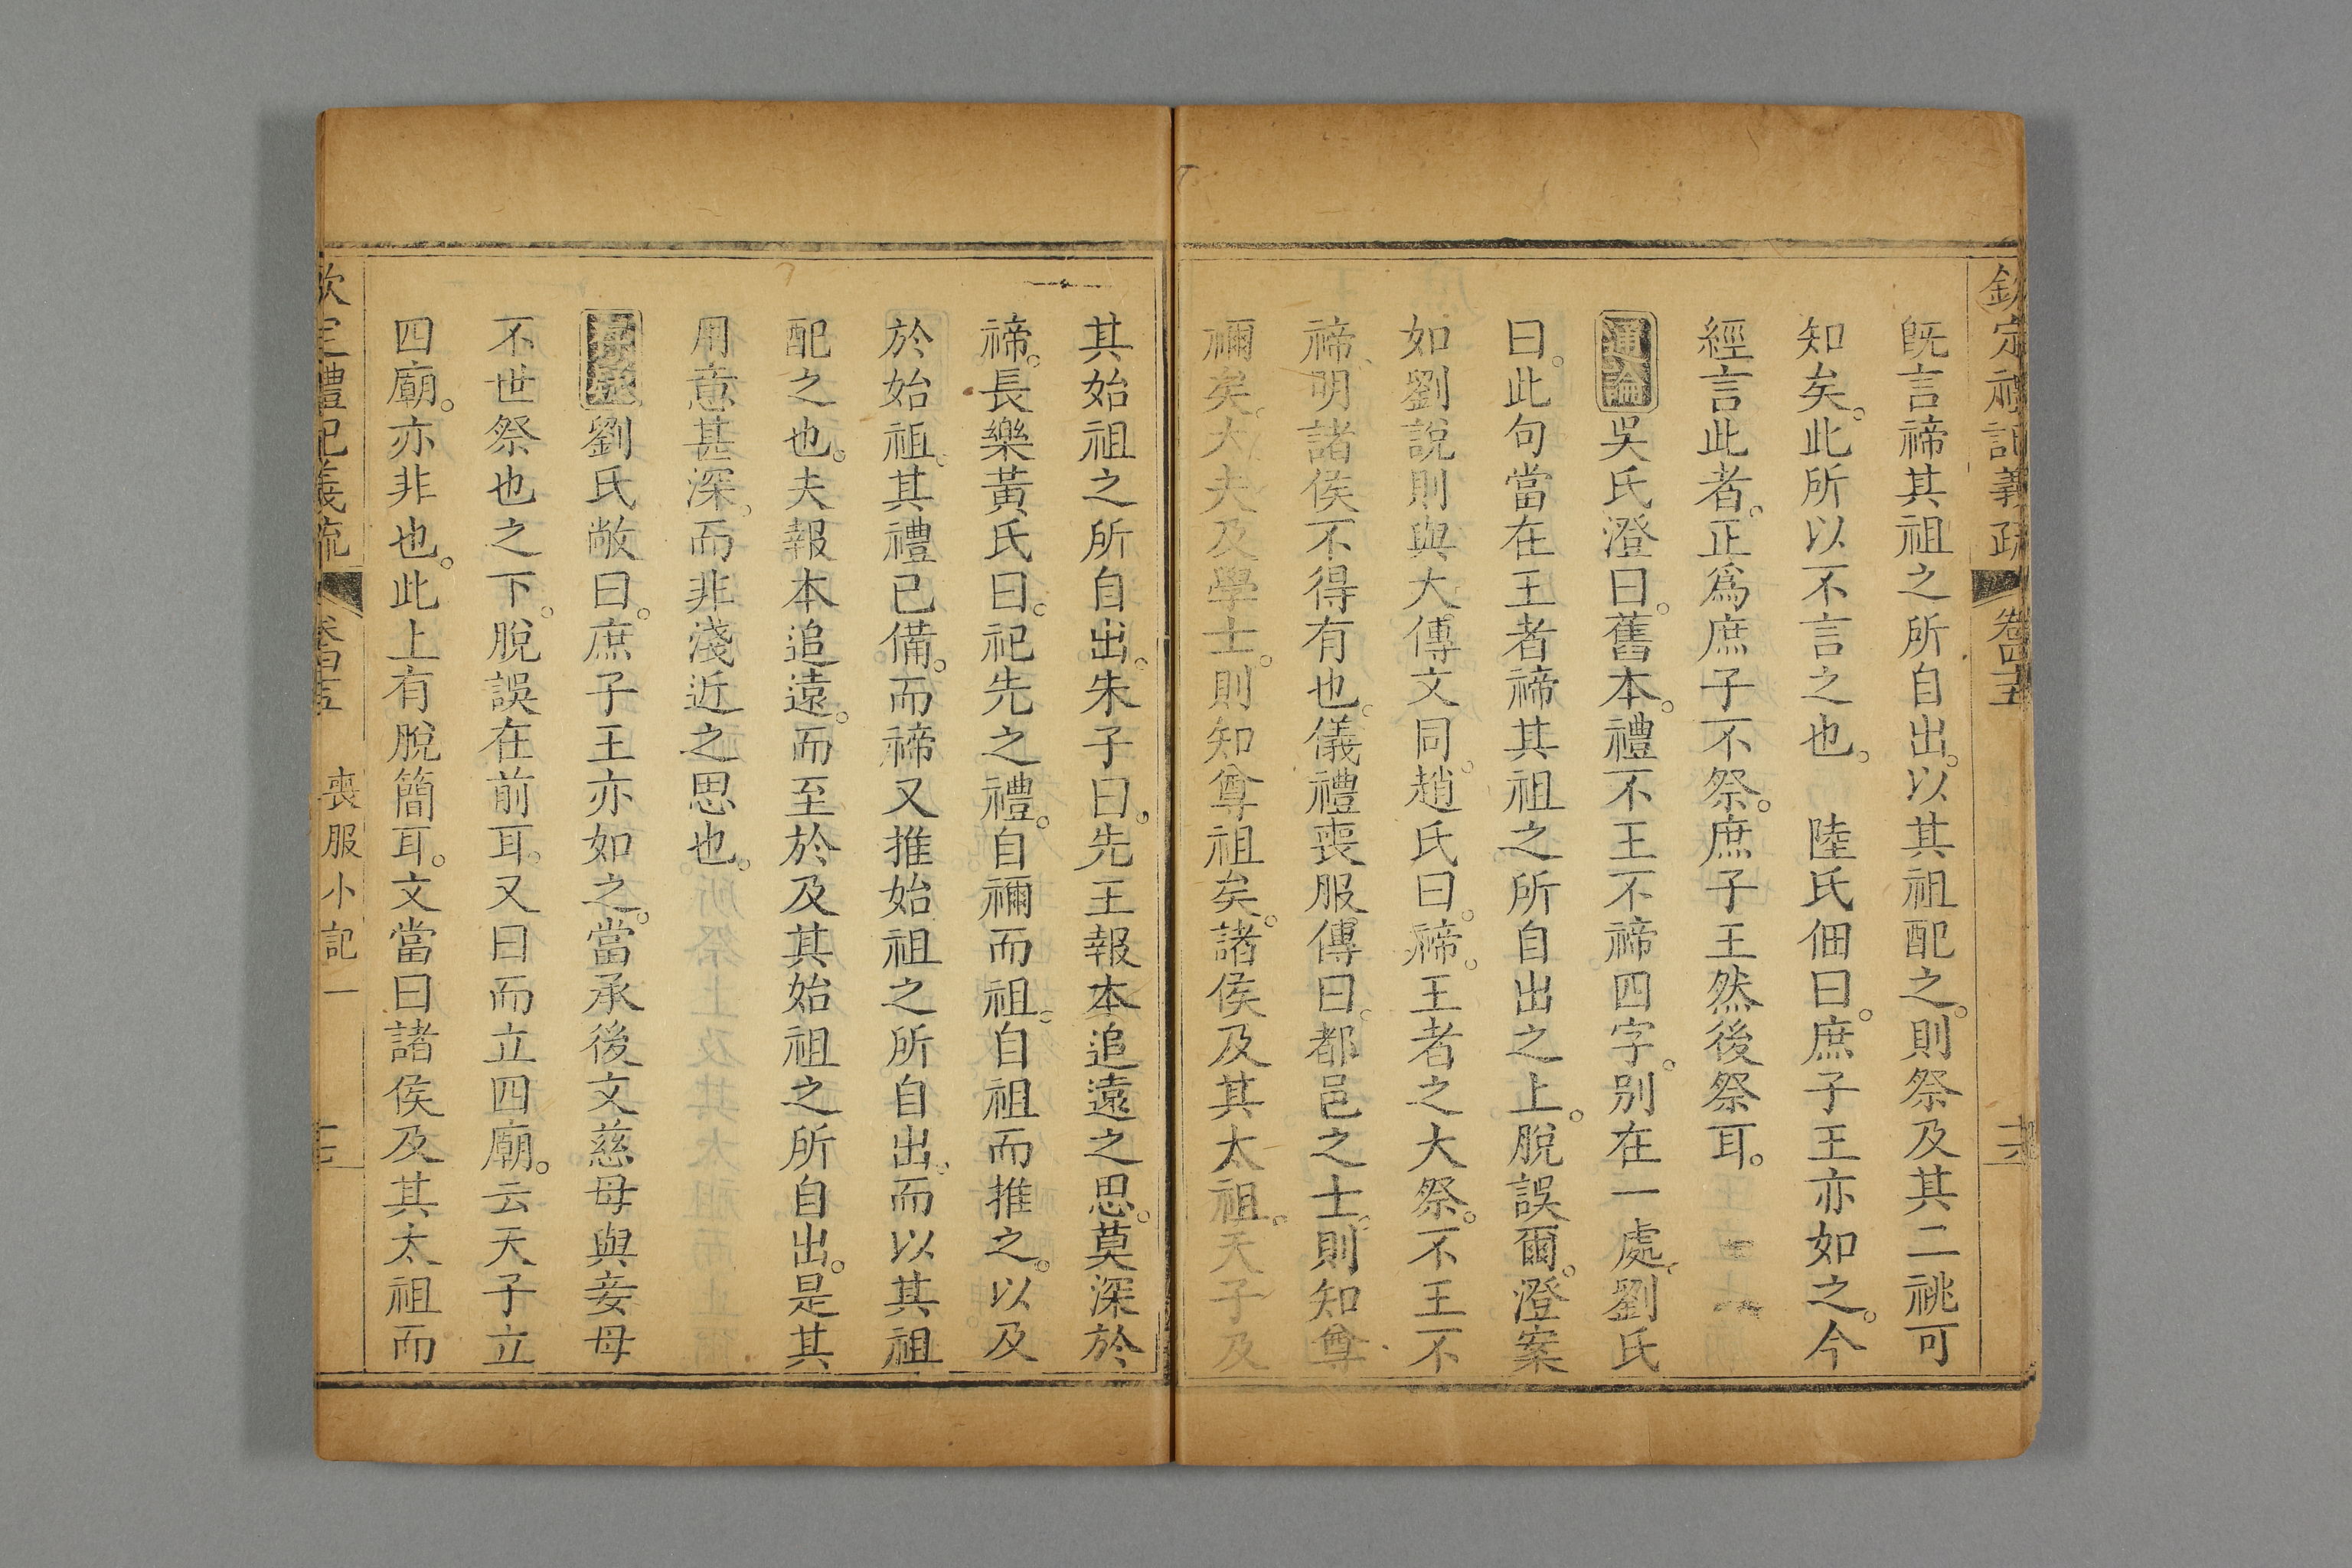 欽定禮記義疏 卷四十五
既言禘其祖之所自出。以其祖配之。則祭及其二祧可
知矣。此所以不言之也。　陸氏佃曰。庶子王亦如之。今
經言此者。正爲庶子不祭。庶子王然後祭耳。
通論吳氏澄曰。舊本。禮不王不禘四字。别在一處。劉氏
曰。此句當在王者禘其祖之所自出之上。脫誤爾。澄案
如劉說則與大傳文同。趙氏曰。禘。王者之大祭。不王不
禘。明諸侯不得有也。儀禮喪服傳曰。都邑之士。則知尊
禰矣。大夫及學士。則知尊祖矣。諸侯及其太祖。天子及
其始祖之所自出。朱子曰。先王報本追遠之思。莫深於
禘。長樂黃氏曰。祀先之禮。自禰而祖。自祖而推之。以及
於始祖。其禮已備。而禘又推始祖之所自出。而以其祖
配之也。夫報本追遠。而至於及其始祖之所自出。是其
用意甚深。而非淺近之思也。
劉氏敞曰。庶子王亦如之。當承後文慈母與妾母
不世祭也之下。脫誤在前耳。又曰而立四廟。云天子立
四廟。亦非也。此上有脫簡耳。文當曰諸侯及其太祖而
欽定禮記義疏 卷四十五 喪服小記一